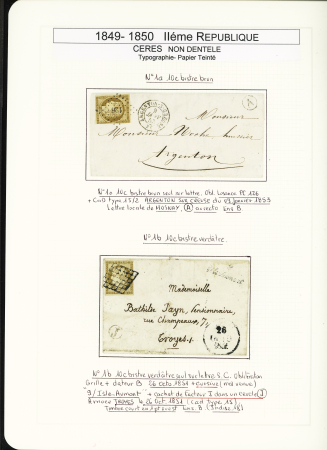 1849- 1850 IIéme REPUBLIQUE
CERES NON DENTELE
Typographie- Papier Teinté
N°1a 10c bistre brun
A
Monsieur
Monsieur
Argenton
N°1a 10c bistre brun seul sur lettre. Obl. Losange PC 126
+ CaD type 15/2 ARGENTON SUR CREUSE du 09 janvier 1853
Lettre locale de (A) au recto Ind B
N°1b 10c bistre verdâtre.
Mademoiselle
Bathilde Payn, Pensionnaire,
rue Champeaux,
Troyes.
26
N°1b 10c bistre verdâtre seul sur lettre S.C. Oblitération
Grille + dateur B 26 Octo 1851 + cursive (mal venue)
9/Isle-Aumont + cachet de facteur I dans un cercle (I)
Arrivée TROYES le 26 Oct. 1851 (cad Type 15)
Ind. B (Indice 18)